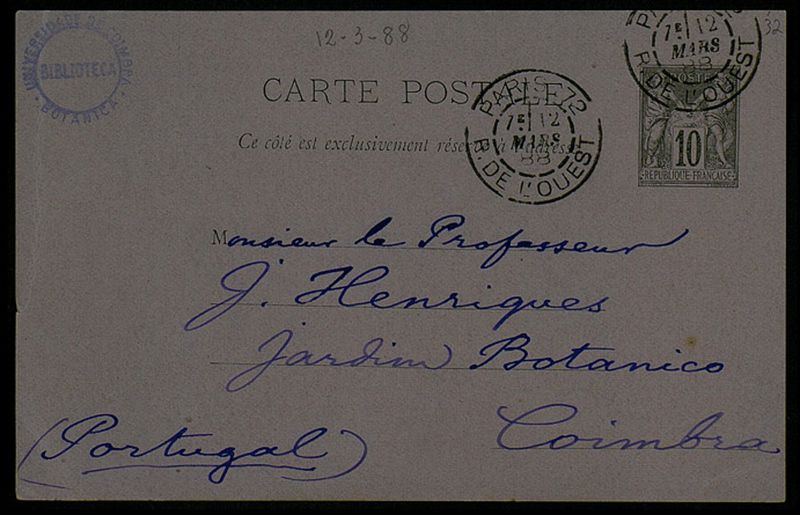 UNIVERSIDADE DE COIMBRA
BIBLIOTECA
BOTANICA
12-3-88
32
PARIS
7E 12
MARS
88
R. DE L'OUEST
CARTE POSTALE
PARIS 12
7E 12
MARS
88
R. DE L'OUEST
POSTES
10
REPUBLIQUE FRANCAISE
Ce côté est exclusivement réservé à l'adresse
Monsieur le Professeur
J. Henriques
Jardim Botanico
Coimbra
(Portugal)